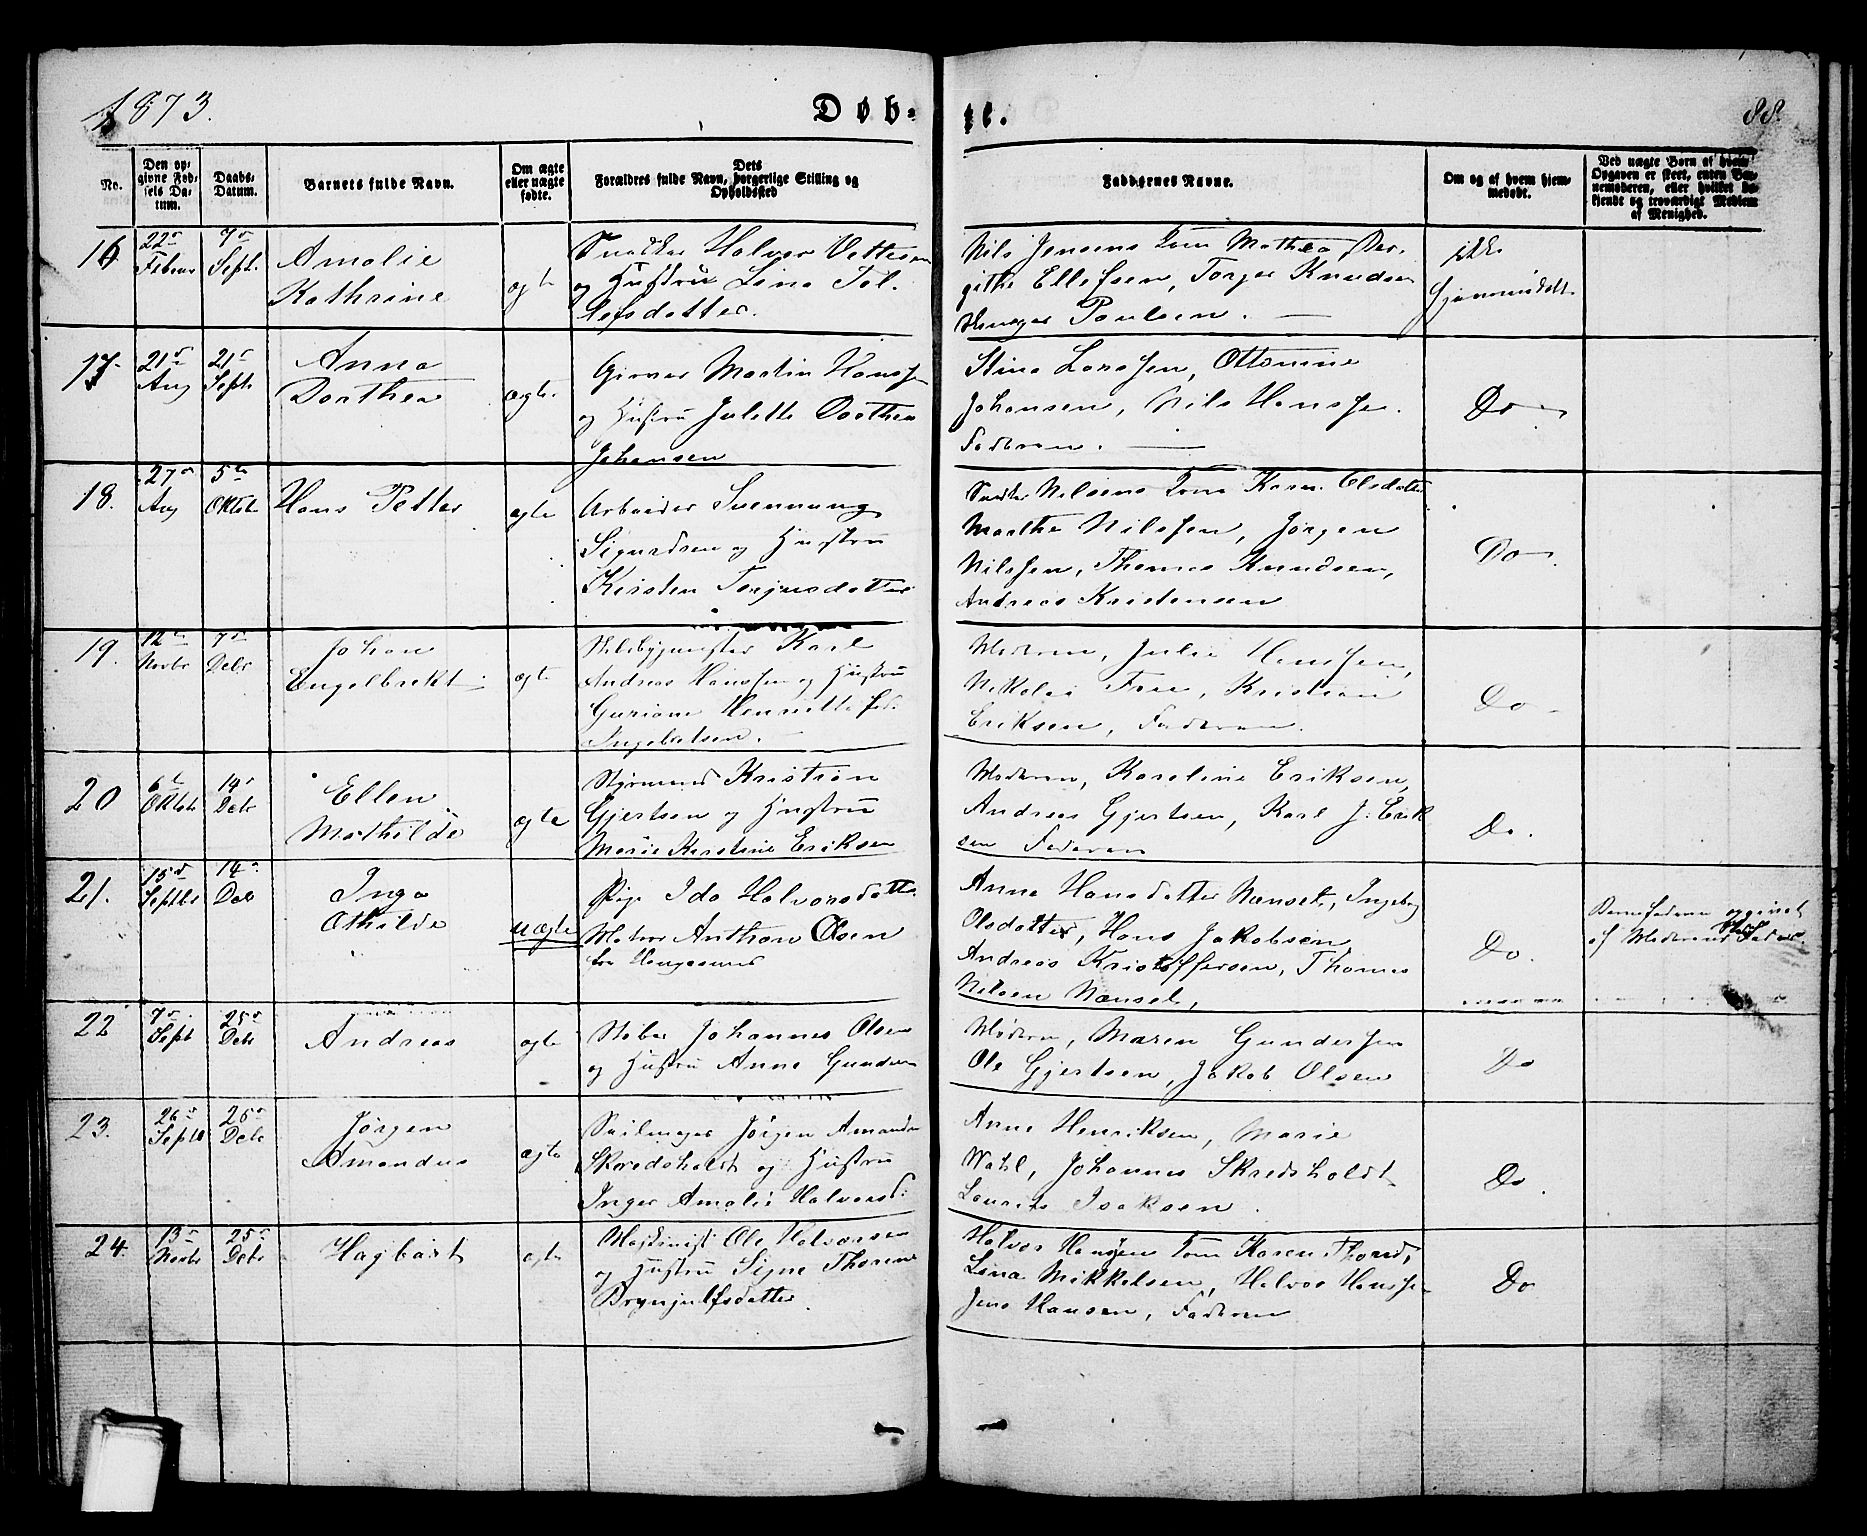 1873.
Døb-
te.
88.
No.
Den op-
givne Fød-
sels Da-
tum.
Daabs-
Datum.
Barnets fulde Navn.
Om ægte
eller uægte
fødte.
Dets
Forældres fulde Navn, borgerlige Stilling og
Opholdssted
Faddernes Navne.
Om og af hvem hjem-
medøbt.
Ved uægte Børn af hvem
Opgaven er skeet, enten Bar-
nemoderen, eller hvilket be-
kjendt og troværdigt Medlem
af Menighed.
16
22
Febr
7
Sept.
Amalie
Kathrine
ægte
Snedker Halvor Vettesen
og Hustru Lina Tol-
lefsdatter.
Nils Jensens Kone Mathea Ber-
githe Ellefsen, Torger Knudsen
Paulsen.
ikke
hjemmedøbt
17
21
Aug
21
Sept.
Anna
Dorthea
ægte.
Martin Hansen
og Hustru Julette Dorthea
Johansen
Stina Larssen, Ottomine
Johansen, Nils Hanssen.
Faderen.
Do
18.
27
Aug
5te
Oktbr
Hans Petter
ægte
Arbeider Svennung
Sigurdsen og Hustru
Kirsten Torjusdatter
Nilsens Kone Karen Olsdatter
Marthe Nilssen, Jørgen
Nilssen, Thomas Knudsen,
Andreas Kristensen
Do
19.
12te
Novbr
7
Debr
Johan
Engelbrekt
ægte
Karl
Andreas Hanssen og Hustru
Henriette fød:
Ingebretsen.
Moderen, Julie Hanssen,
Nikolai Foss, Kristian
Eriksen, Faderen.
Do
20
6te
Oktbr
14
Debr
Ellen
Mathilde
ægte
Styrmand Kristian
Gjertsen og Hustru
Marie Kirstine Eriksen
Moderen, Karoline Eriksen,
Andreas Gjertsen, Karl J. Erik
sen Faderen
Do.
21.
15de
Septbr
14
Debr
Inga
Othilde
uægte
Pige Ida Halvorsdatter
Matros Anthon Olsen
fra
Anne Hansdatter Nænset, Ingeborg
Olsdatter, Hans Jakobsen
Andreas Kristoffersen, Thomas
Nilsen Nænset,
Do.
Barnefaderen opgivet
af Moderens Fader.
22
7
Sept
25
Debr
Andreas
ægte
Johannes Olsen
og Hustru Anne Gundersen
Moderen, Maren Gundersen
Ole Gjertsen, Jakob Olsen
Do
23.
26
Septbr
25
Debr
Jørgen
Amandus
ægte
Seilmager Jørgen Amandus
Skredsholdt og Hustru
Inger Amalie Halvorsd:
Anne Henriksen, Marie
Wahl, Johannes Skredsholdt
Laurits Isaksen.
Do.
24.
13
Novbr
25
Debr
Hagbart
ægte
Maskinist Ole Halvorsen
og Hustru Signe Thorine
Brynjulfsdatter
Halvor Hansens Kone Karen Thorsd,
Lina Mikkelsen, Halvor Hanssen
Jens Hansen, Faderen
Do